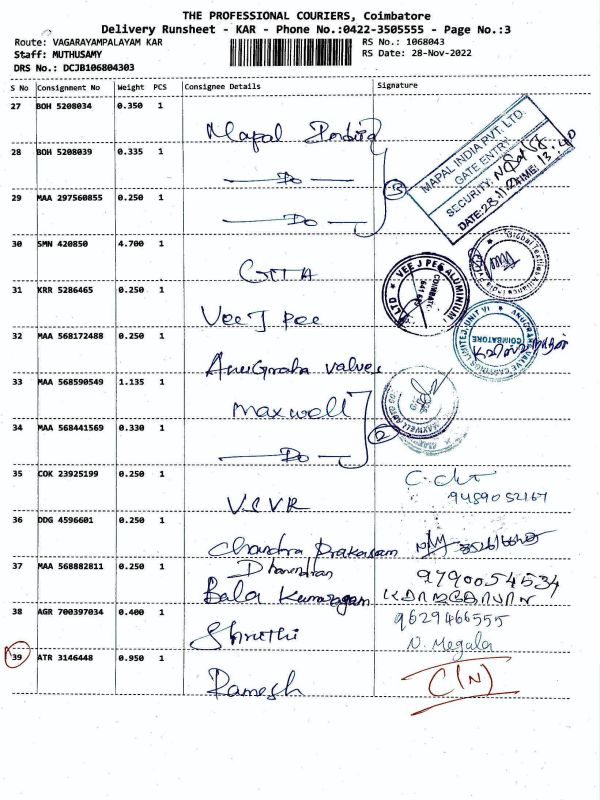 THE PROFESSIONAL COURIERS, Coimbatore
Delivery Runsheet - KAR - Phone No.:0422-3505555 - Page No.:3
Route: VAGARAYAMPALAYAM KAR RS No.: 1068043
Staff: MUTHUSAMY RS Date: 28-Nov-2022
DRS No.: DCJB106804303
S No Consignment No Weight PCS Consignee Details Signature
27 BOH 5208034 0.350 1
Mapal India
MAPAL INDIA PVT. LTD.
GATE ENTRY
SECURITY:
DATE:28.11 TIME: 13.40
28 BOH 5208039 0.335 1
Do
29 MAA 297560855 0.250 1
Do
30 SMN 420850 4.700 1
GTTA
Global Textiles Alliance India
VEE J PEE ALUMINIUM
31 KRR 5286465 0.250 1
Vee J pee
ANUGRAHA VALVE CASTINGS LIMITED, UNIT VI
COIMBATORE
32 MAA 568172488 0.250 1
AnuGraha valves
33 MAA 568590549 1.135 1
maxwell
2
34 MAA 568441569 0.330 1
Do
35 COK 23925199 0.250 1
V.C.V.R
9489052167
36 DDG 4596601 0.250 1
Chandra Prakasam
37 MAA 568882811 0.250 1
Dharendran
9790054534
Bala Kumaragam
38 AGR 700397034 0.400 1
9629466555
Shruthi
N. Megala
39 ATR 3146448 0.950 1
C(N)
Ramesh